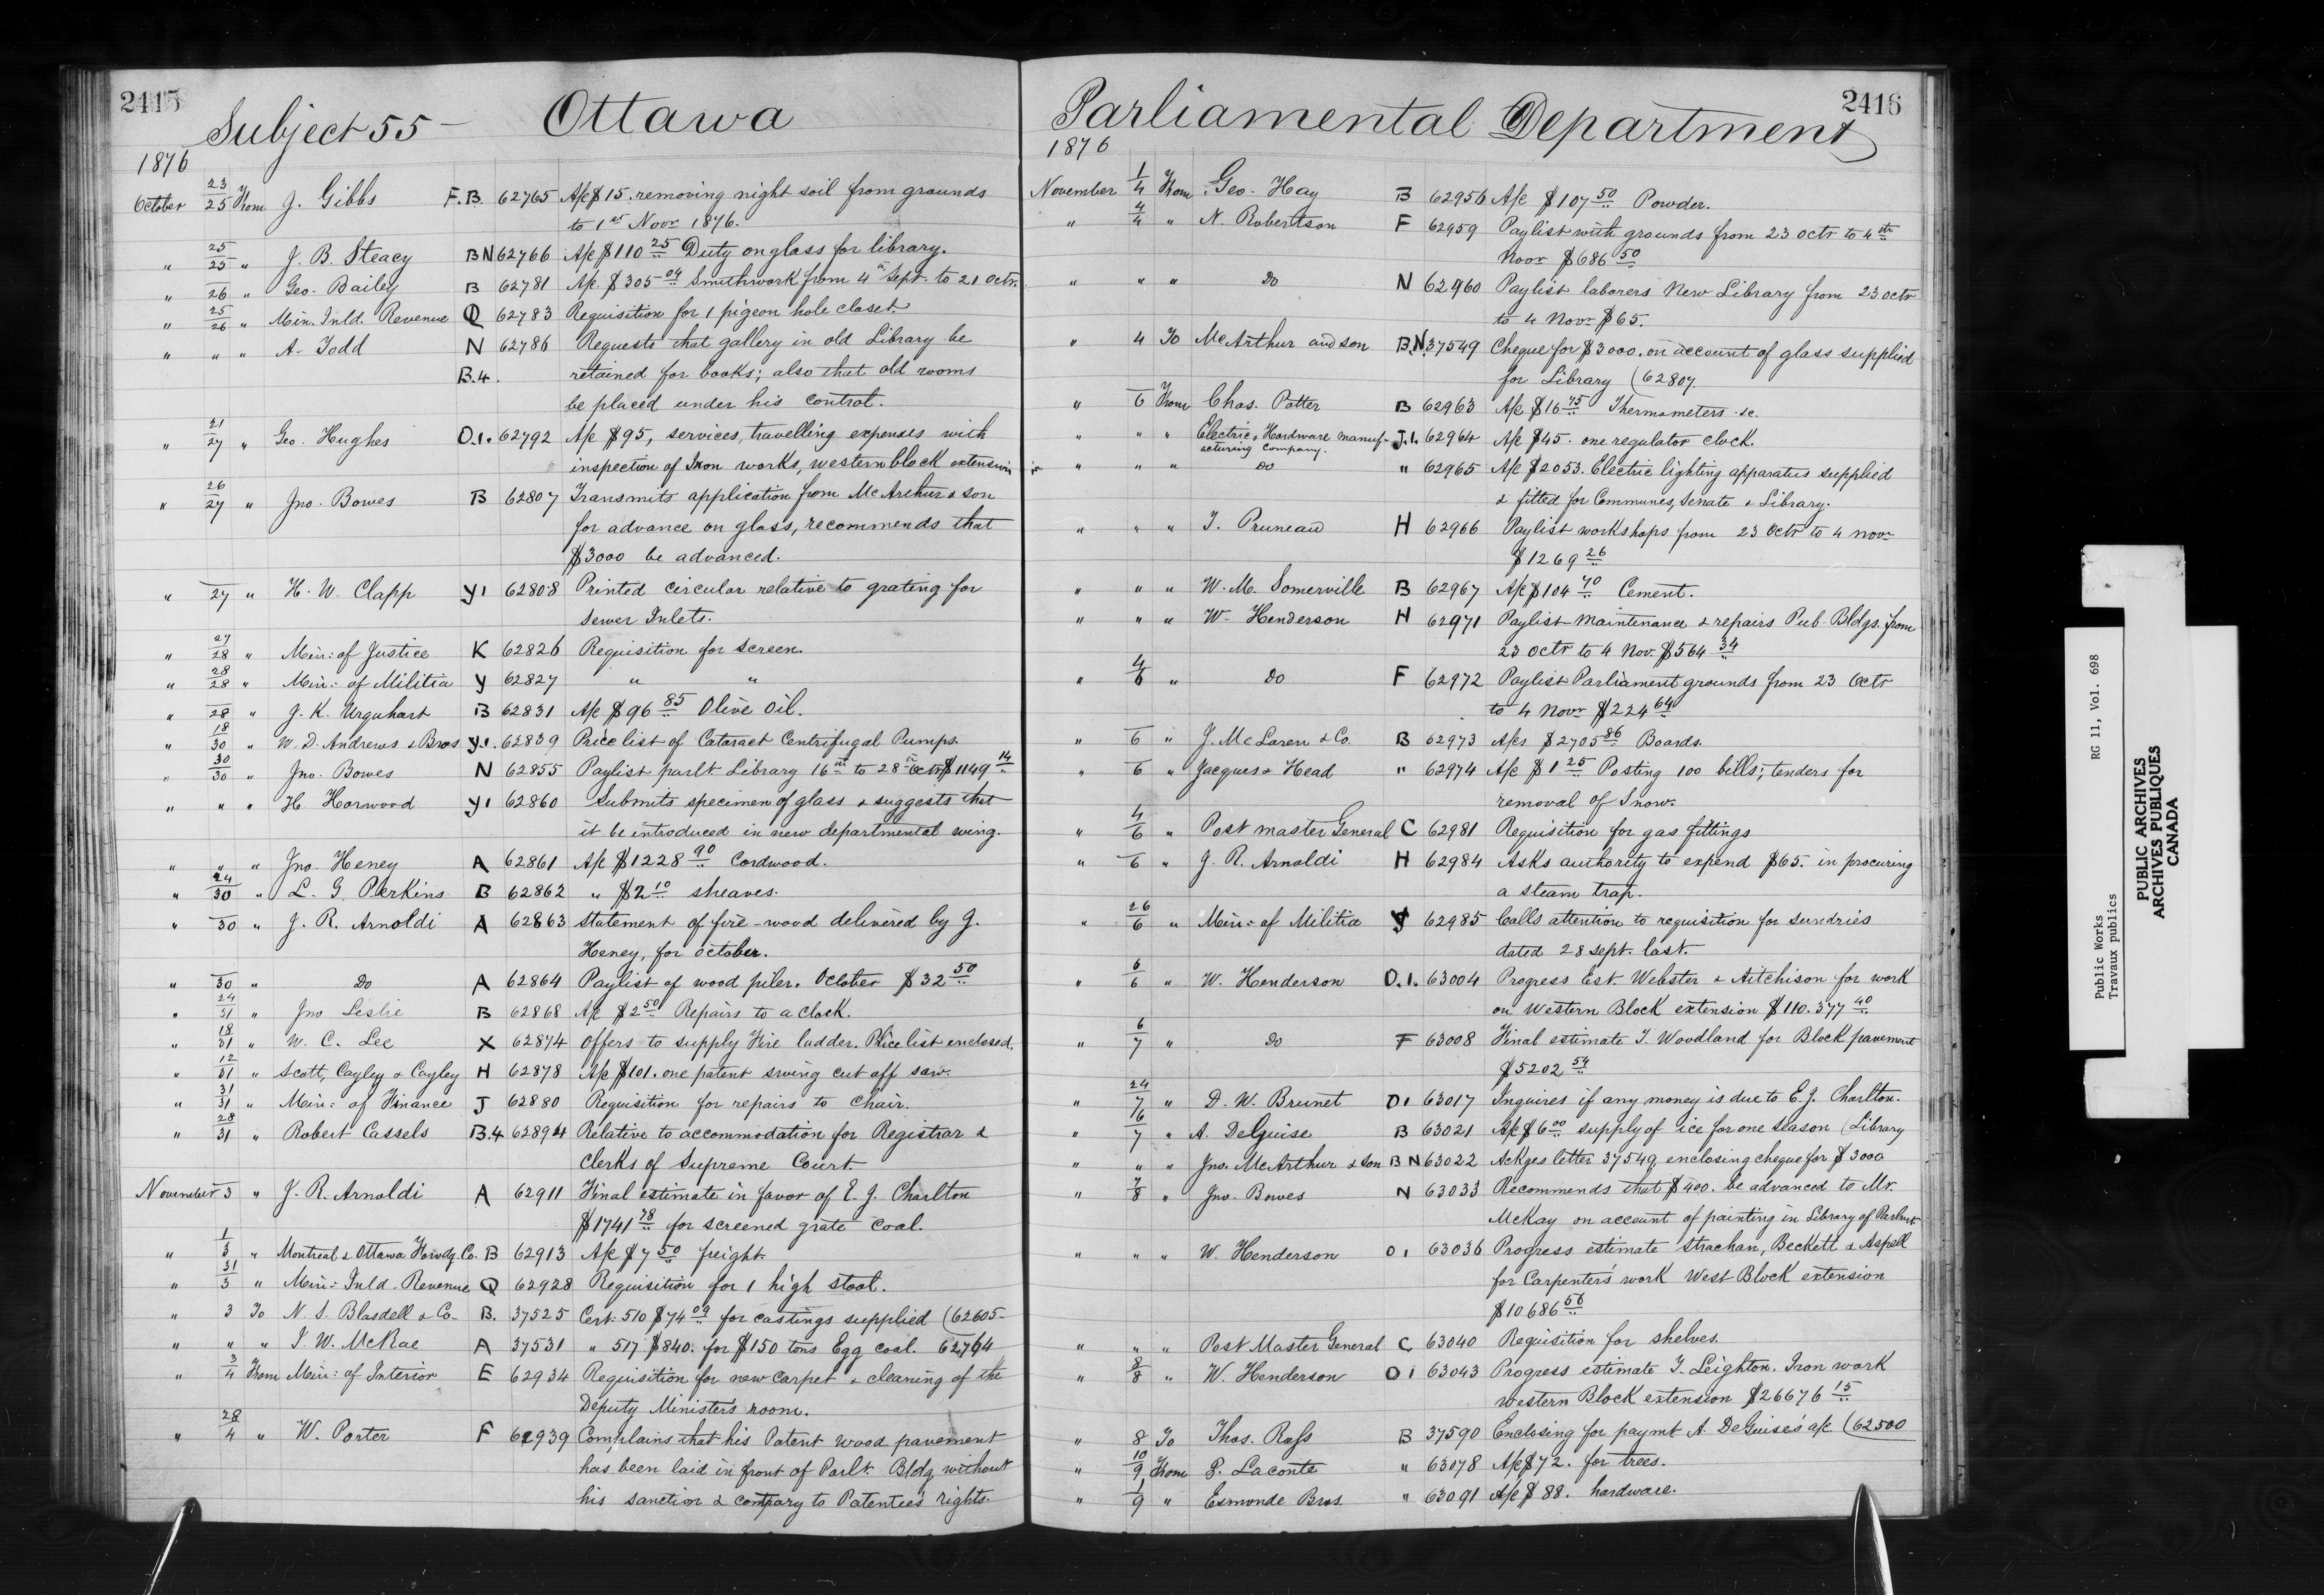 2415
Subject 55 - Ottawa
1876
October 23/25 From J. Gibbs F.B. 62765 A/c $15. removing night soil from grounds
to 1st Novr 1876.
" 25/25 " J. B. Steacy B N 62766 A/c $110 25 Duty on glass for library.
" 26 " Geo. Bailey B 62781 A/c $305 04 Smithwork from 4th Sept. to 21 Octr.
" 25/26 " Min. Inld. Revenue Q 62783 Requisition for 1 pigeon hole closet.
" " " A. Todd N 62786 Requests that gallery in old Library be
B.4. retained for books; also that old rooms
be placed under his control.
" 21/27 " Geo. Hughes O.1. 62792 A/c $95, services, travelling expenses with
inspection of Iron works, western block extension
" 26/27 " Jno. Bowes B 62807 Transmits application from McArthur & son
for advance on glass, recommends that
$3000 be advanced.
" 27 " H. W. Clapp Y1 62808 Printed circular relative to grating for
Sewer Inlets.
" 27/28 " Min: of Justice K 62826 Requisition for screen.
" 28/28 " Min: of Militia Y 62827 " "
" 28 " J. K. Urquhart B 62831 A/c $96 85 Olive oil.
" 18/30 " W. D. Andrews & Bros Y.1. 62839 Price list of Cataract Centrifugal Pumps.
" 30/30 " Jno. Bowes N 62855 Paylist parlt Library 16th to 28th Octr $1149 14
" " " H. Horwood Y1 62860 Submits specimen of glass & suggests that
it be introduced in new departmental wing.
" " " Jno. Heney A 62861 A/c $1228 90 Cordwood.
" 24/30 " L. G. Perkins B 62862 " $2 10 sheaves.
" 30 " J. R. Arnoldi A 62863 Statement of fire-wood delivered by J.
Heney, for October.
" 30 " Do A 62864 Paylist of wood piler. October $32 50
" 24/31 " Jno Leslie B 62868 A/c $2 50 Repairs to a clock.
" 18/31 " W. C. Lee X 62874 Offers to supply Fire ladder. Price list enclosed.
" 12/31 " Scott, Cayley & Cayley H 62878 A/c $101. one patent swing cut off saw.
" 31/31 " Min: of Finance J 62880 Requisition for repairs to chair.
" 28/31 " Robert Cassels B.4 62894 Relative to accommodation for Registrar &
Clerks of Supreme Court.
November 3 " J. R. Arnoldi A 62911 Final estimate in favor of E. J. Charlton
$1741 78 for screened grate coal.
" 1/3 " Montreal & Ottawa Forwdg. Co. B 62913 A/c $7 50 freight.
" 31/3 " Min: Inld. Revenue Q 62928 Requisition for 1 high stool.
" 3 To N. S. Blasdell & Co. B. 37525 Cert: 510 $74 09 for castings supplied (62605
" " " J. W. McRae A 37531 " 517 $840. for $150 tons Egg coal. 62764
" 3/4 From Min: of Interior E 62934 Requisition for new carpet & cleaning of the
Deputy Minister's room.
" 28/4 " W. Porter F 62939 Complains that his Patent wood pavement
has been laid in front of Parlt. Bldg without
his sanction & contrary to Patentee's rights.
2416
Parliamental Department
1876
November 1/4 From Geo. Hay B 62956 A/c $107 50 Powder.
" 4/4 " N. Robertson F 62959 Paylist with grounds from 23 octr to 4th
Novr $686 50
" " " Do N 62960 Paylist laborers New Library from 23 octr
to 4 Novr $65.
" 4 To McArthur and son B.N. 37549 Cheque for $3000. on account of glass supplied
for Library (62807.
" 6 From Chas. Potter B 62963 A/c $16 75 Thermometers &c.
" " " Electric & Hardware manuf- J.1. 62964 A/c $45. one regulator clock.
acturing Company.
" " " Do " 62965 A/c $2053. Electric lighting apparatus supplied
& fitted for Communes, Senate & Library.
" " " T. Pruneau H 62966 Paylist workshops from 23 Octr to 4 novr
$1269 26
" " " W. M. Somerville B 62967 A/c $104 70 Cement.
" " " W. Henderson H 62971 Paylist maintenance & repairs Pub. Bldgs. from
23 octr to 4 Nov. $564 34
" 4/6 " Do F 62972 Paylist Parliament grounds from 23 Octr
to 4 Novr $224 64
" 6 " J. McLaren & Co. B 62973 A/cs $2705 86 Boards.
" 6 " Jacques & Head " 62974 A/c $1 25 Posting 100 bills; tenders for
removal of Snow.
" 4/6 " Post master General C 62981 Requisition for gas fittings
" 6 " J. R. Arnoldi H 62984 Asks authority to expend $65. in procuring
a steam trap.
" 26/6 " Min: of Militia Y 62985 Calls attention to requisition for sundries
dated 28 sept. last.
" 6/6 " W. Henderson O.1. 63004 Progress Est. Webster & Aitchison for work
on Western Block extension $110.377 40
" 6/7 " Do F 63008 Final estimate T. Woodland for Block pavement
$5202 54
" 24/7 " D. W. Brunet O1 63017 Inquires if any money is due to E. J. Charlton.
" 6/7 " A. DeGuise B 63021 A/c $6 00 supply of ice for one season (Library
" " " Jno. McArthur & Son B N 63022 Ackges letter 37549, enclosing cheque for $3000
" 7/8 " Jno. Bowes N 63033 Recommends that $400. be advanced to Mr.
McKay on account of painting in Library of Parlmt
" " " W. Henderson O 1 63036 Progress estimate Strachan, Beckett & Aspell
for Carpenter's work West Block extension
$10686 56
" " " Post Master General C 63040 Requisition for shelves.
" 8/8 " W. Henderson O 1 63043 Progress estimate T. Leighton. Iron work
western Block extension $26676 15
" 8 To Thos. Ross B 37590 Enclosing for paymt A. DeGuise's a/c (62500
" 10/9 From P. Laconte " 63078 A/c $72. for trees.
" 1/9 " Esmonde Bros. " 63091 A/c $88. hardware.
Public Works RG 11, Vol. 698
Travaux publics
PUBLIC ARCHIVES
ARCHIVES PUBLIQUES
CANADA